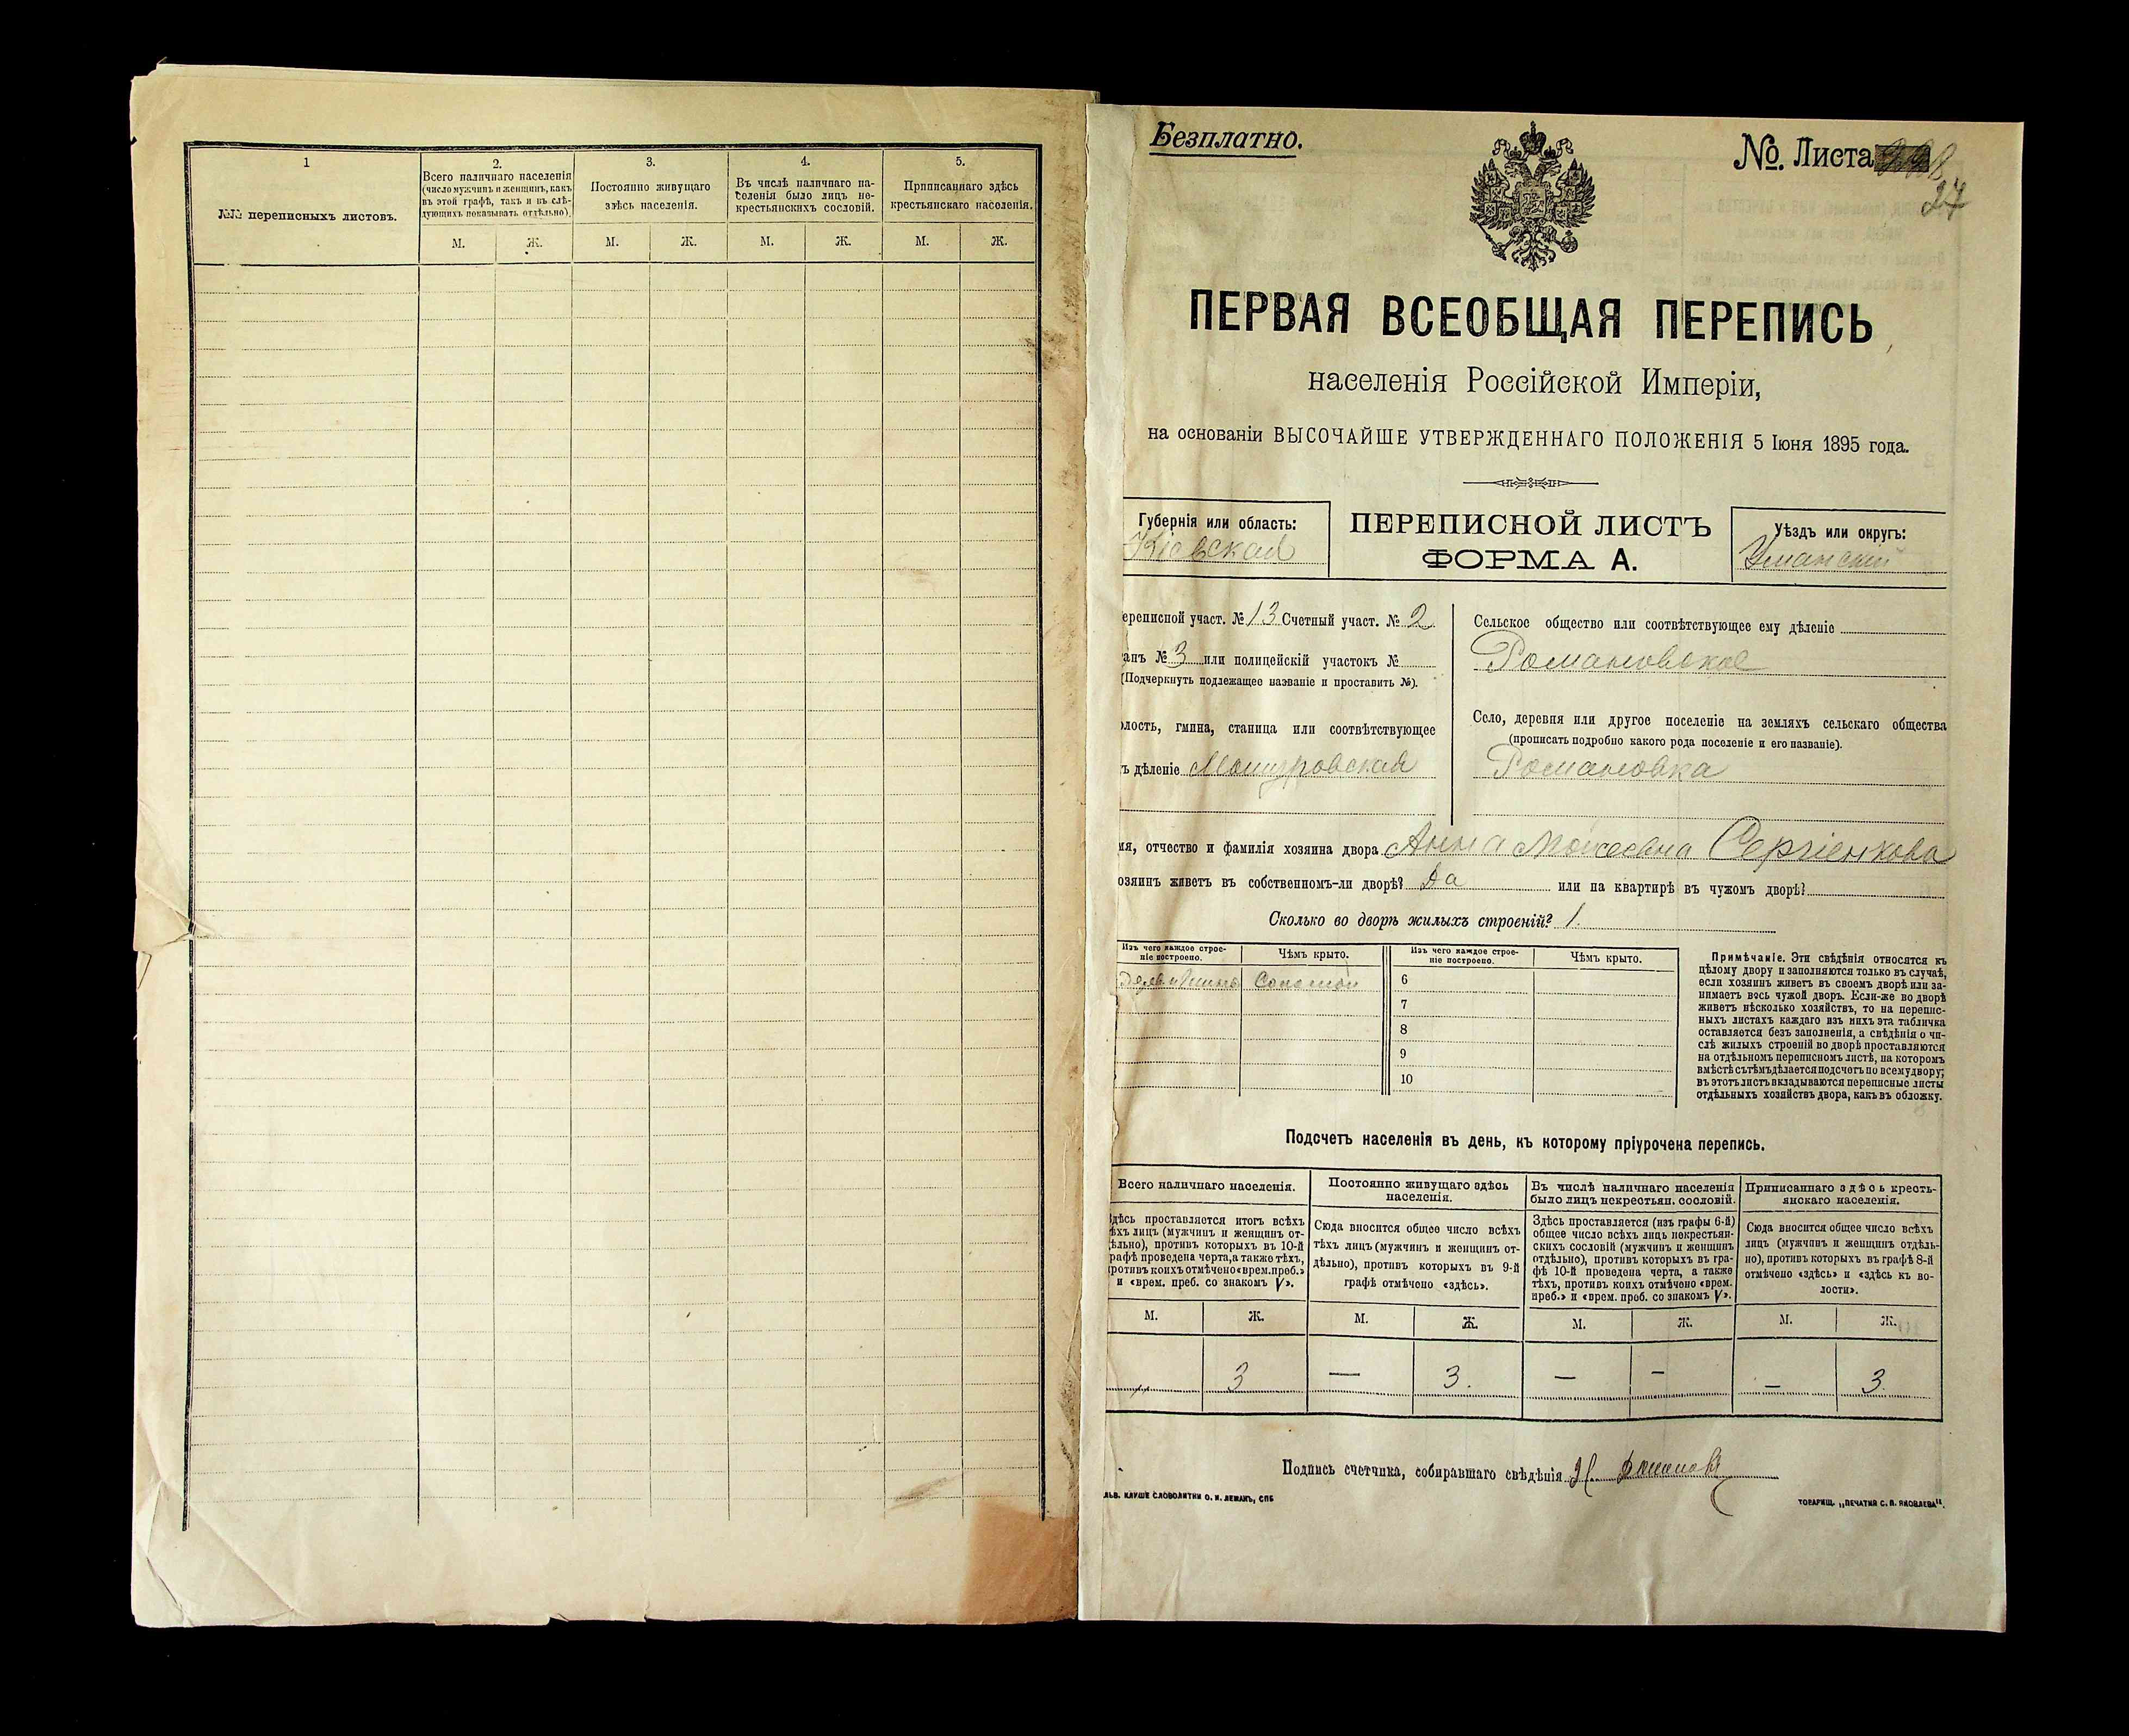 1
2.
3.
4.
5.
№№ переписныхъ листовъ.
Всего наличнаго населенія
(число мужчинъ и женщинъ, какъ
въ этой графѣ, такъ и въ слѣ-
дующихъ показывать отдѣльно).
Постоянно живущаго
здѣсь населенія.
Въ числѣ наличнаго на-
селенія было лицъ не-
крестьянскихъ сословій.
Приписаннаго здѣсь
крестьянскаго населенія.
М. Ж. М. Ж. М. Ж. М. Ж.
Безплатно.
№ Листа
27
ПЕРВАЯ ВСЕОБЩАЯ ПЕРЕПИСЬ
населенія Россійской Имперіи,
на основаніи ВЫСОЧАЙШЕ УТВЕРЖДЕННАГО ПОЛОЖЕНІЯ 5 Іюня 1895 года.
Губернія или область:
Кіевская
ПЕРЕПИСНОЙ ЛИСТЪ
ФОРМА А.
Уѣздъ или округъ:
Уманскій
ереписной участ. № 13 Счетный участ. № 2
анъ № 3 или полицейскій участокъ №
(Подчеркнуть подлежащее названіе и проставить №).
олость, гмина, станица или соотвѣтствующее
ъ дѣленіе
Сельское общество или соотвѣтствующее ему дѣленіе
Романовское
Село, деревня или другое поселеніе на земляхъ сельскаго общества
(прописать подробно какого рода поселеніе и его названіе).
Романовка
мя, отчество и фамилія хозяина двора Анна Моисеевна Сергіенкова
озяинъ живетъ въ собственномъ-ли дворѣ? Да или на квартирѣ въ чужомъ дворѣ?
Сколько во дворѣ жилыхъ строеній? 1.
Изъ чего каждое строе-
ніе построено.
Чѣмъ крыто.
Изъ чего каждое строе-
ніе построено.
Чѣмъ крыто.
Соломой
6
7
8
9
10
Примѣчаніе. Эти свѣдѣнія относятся къ
цѣлому двору и заполняются только въ случаѣ,
если хозяинъ живетъ въ своемъ дворѣ или за-
нимаетъ весь чужой дворъ. Если-же во дворѣ
живетъ нѣсколько хозяйствъ, то на перепис-
ныхъ листахъ каждаго изъ нихъ эта табличка
оставляется безъ заполненія, а свѣдѣнія о чи-
слѣ жилыхъ строеній во дворѣ проставляются
на отдѣльномъ переписномъ листѣ, на которомъ
вмѣстѣ съ тѣмъ дѣлается подсчетъ по всему двору;
въ этотъ листъ вкладываются переписные листы
отдѣльныхъ хозяйствъ двора, какъ въ обложку.
Подсчетъ населенія въ день, къ которому пріурочена перепись.
Всего наличнаго населенія.
Постоянно живущаго здѣсь
населенія.
Въ числѣ наличнаго населенія
было лицъ некрестьян. сословій.
Приписаннаго здѣсь кресть-
янскаго населенія.
Здѣсь проставляется итогъ всѣхъ
ѣхъ лицъ (мужчинъ и женщинъ от-
дѣльно), противъ которыхъ въ 10-й
графѣ проведена черта, а также тѣхъ,
противъ коихъ отмѣчено «врем. преб.»
и «врем. преб. со знакомъ V».
Сюда вносится общее число всѣхъ
тѣхъ лицъ (мужчинъ и женщинъ от-
дѣльно), противъ которыхъ въ 9-й
графѣ отмѣчено «здѣсь».
Здѣсь проставляется (изъ графы 6-й)
общее число всѣхъ лицъ некрестьян-
скихъ сословій (мужчинъ и женщинъ
отдѣльно), противъ которыхъ въ гра-
фѣ 10-й проведена черта, а также
тѣхъ, противъ коихъ отмѣчено «врем.
преб.» и «врем. преб. со знакомъ V».
Сюда вносится общее число всѣхъ
лицъ (мужчинъ и женщинъ отдѣль-
но), противъ которыхъ въ графѣ 8-й
отмѣчено «здѣсь» и «здѣсь къ во-
лости».
М. Ж. М. Ж. М. Ж. М. Ж.
3 — 3. — — — 3
Подпись счетчика, собиравшаго свѣдѣнія
ЛЬВ. КЛИШЕ СЛОВОЛИТНИ О. И. ЛЕМАНЪ, СПБ
ТОВАРИЩ. „ПЕЧАТНЯ С. П. ЯКОВЛЕВА".